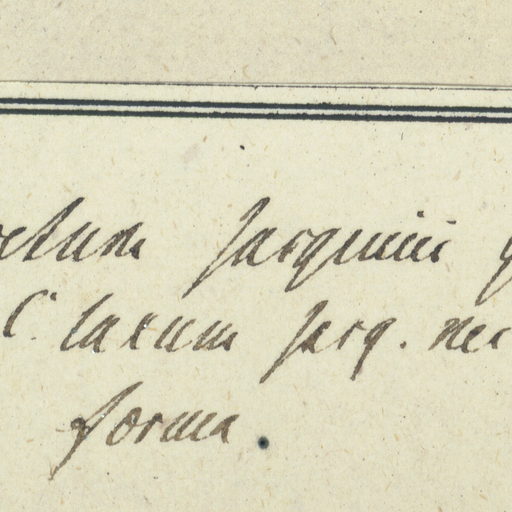 Jacquini
C. laxum Jacq. nec
forma.